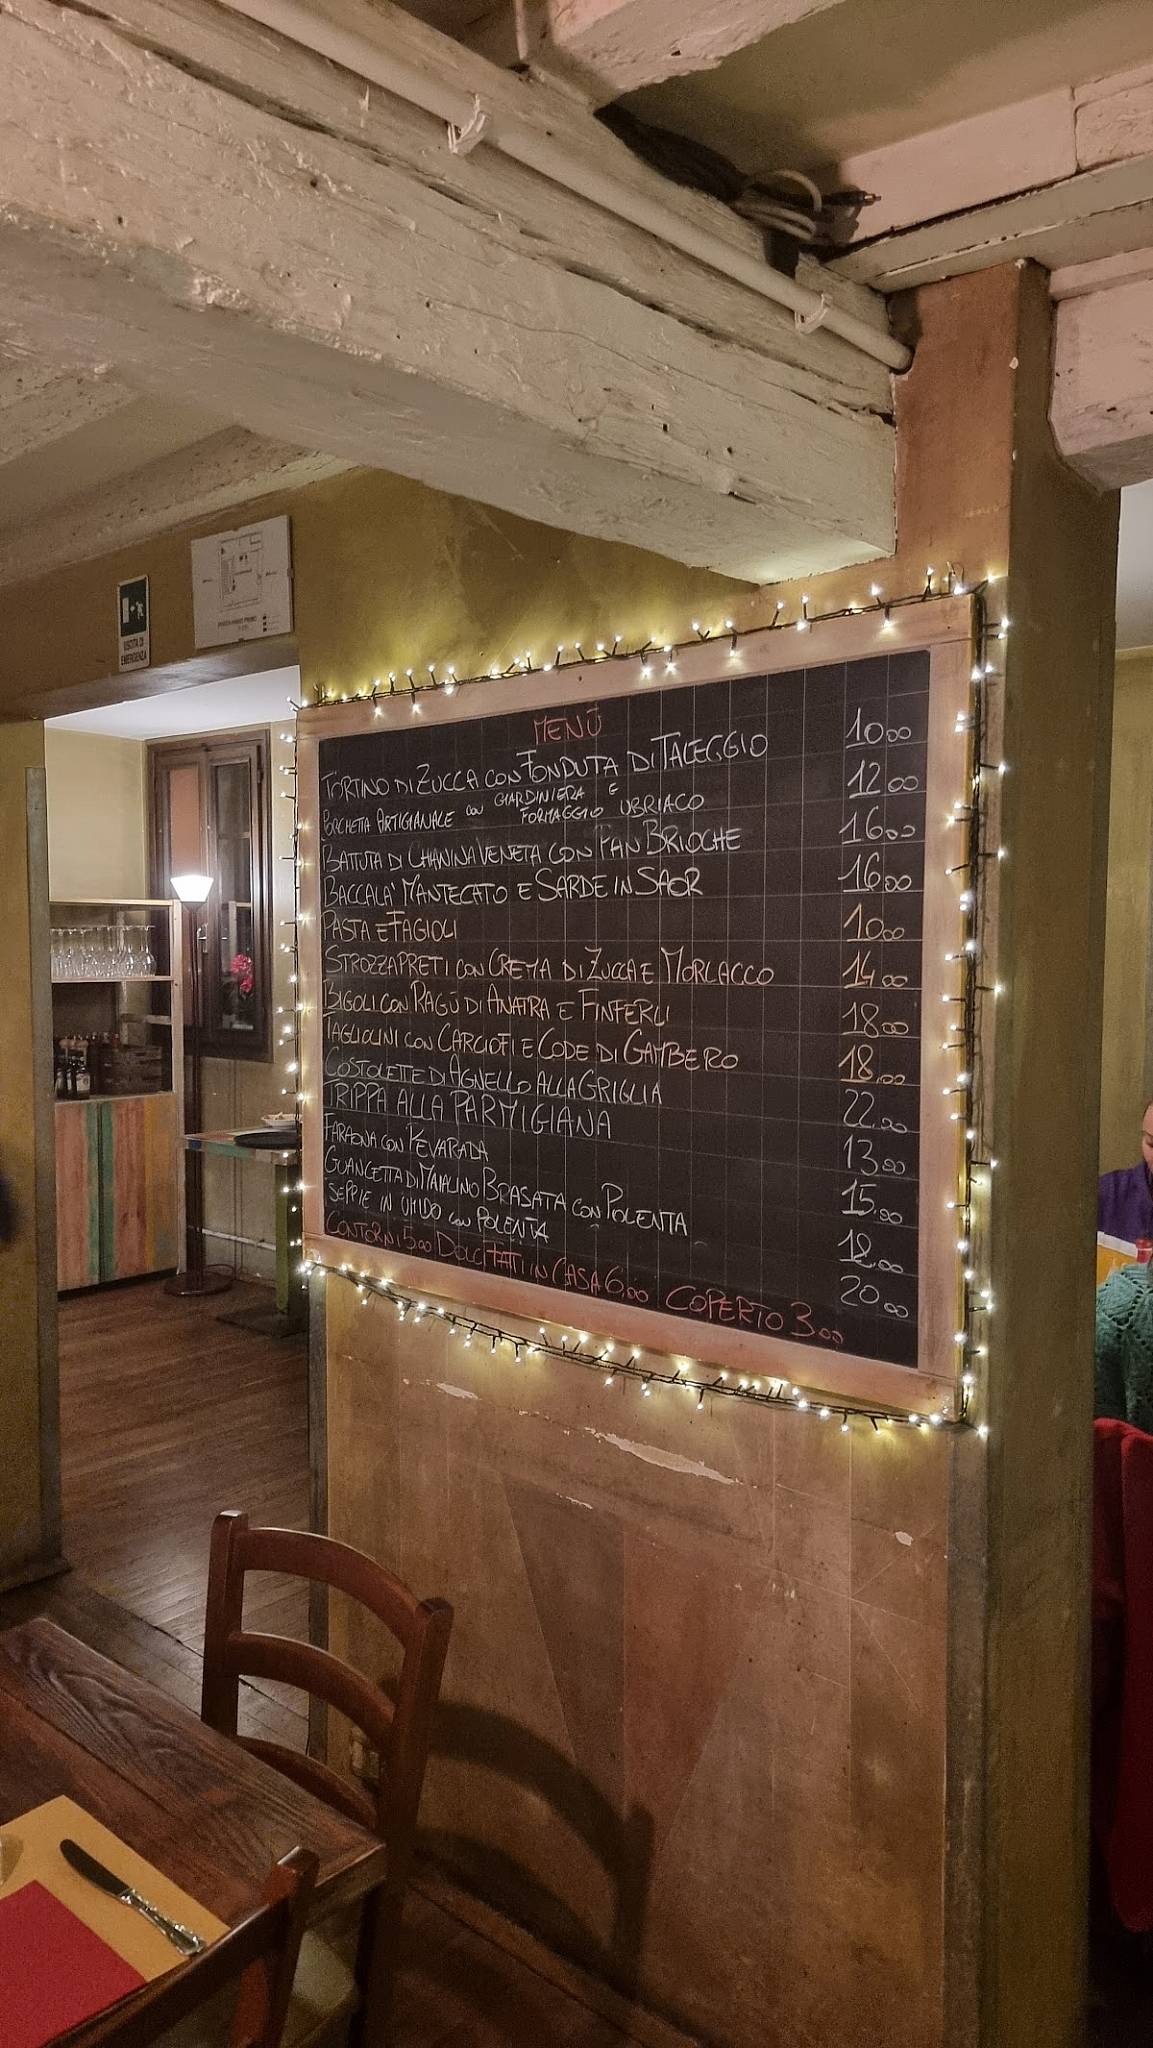 USCITA DI
EMERGENZA
MENÙ
TORTINO DI ZUCCA CON FONDUTA DI TALEGGIO 10,00
PORCHETTA ARTIGIANALE CON GIARDINIERA E FORMAGGIO UBRIACO 12,00
BATTUTA DI CHIANINA VENETA CON PAN BRIOCHE 16,00
BACCALA' MANTECATO E SARDE IN SAOR 16,00
PASTA E FAGIOLI 10,00
STROZZAPRETI CON CREMA DI ZUCCA E MORLACCO 14,00
BIGOLI CON RAGÙ DI ANATRA E FINFERLI 18,00
TAGLIOLINI CON CARCIOFI E CODE DI GAMBERO 18,00
COSTOLETTE DI AGNELLO ALLA GRIGLIA 22,00
TRIPPA ALLA PARMIGIANA 13,00
FARAONA CON PEVARADA 15,00
GUANCETTA DI MAIALINO BRASATA CON POLENTA 18,00
SEPPIE IN UMIDO CON POLENTA 20,00
CONTORNI 5,00 DOLCI FATTI IN CASA 6,00 COPERTO 3,00